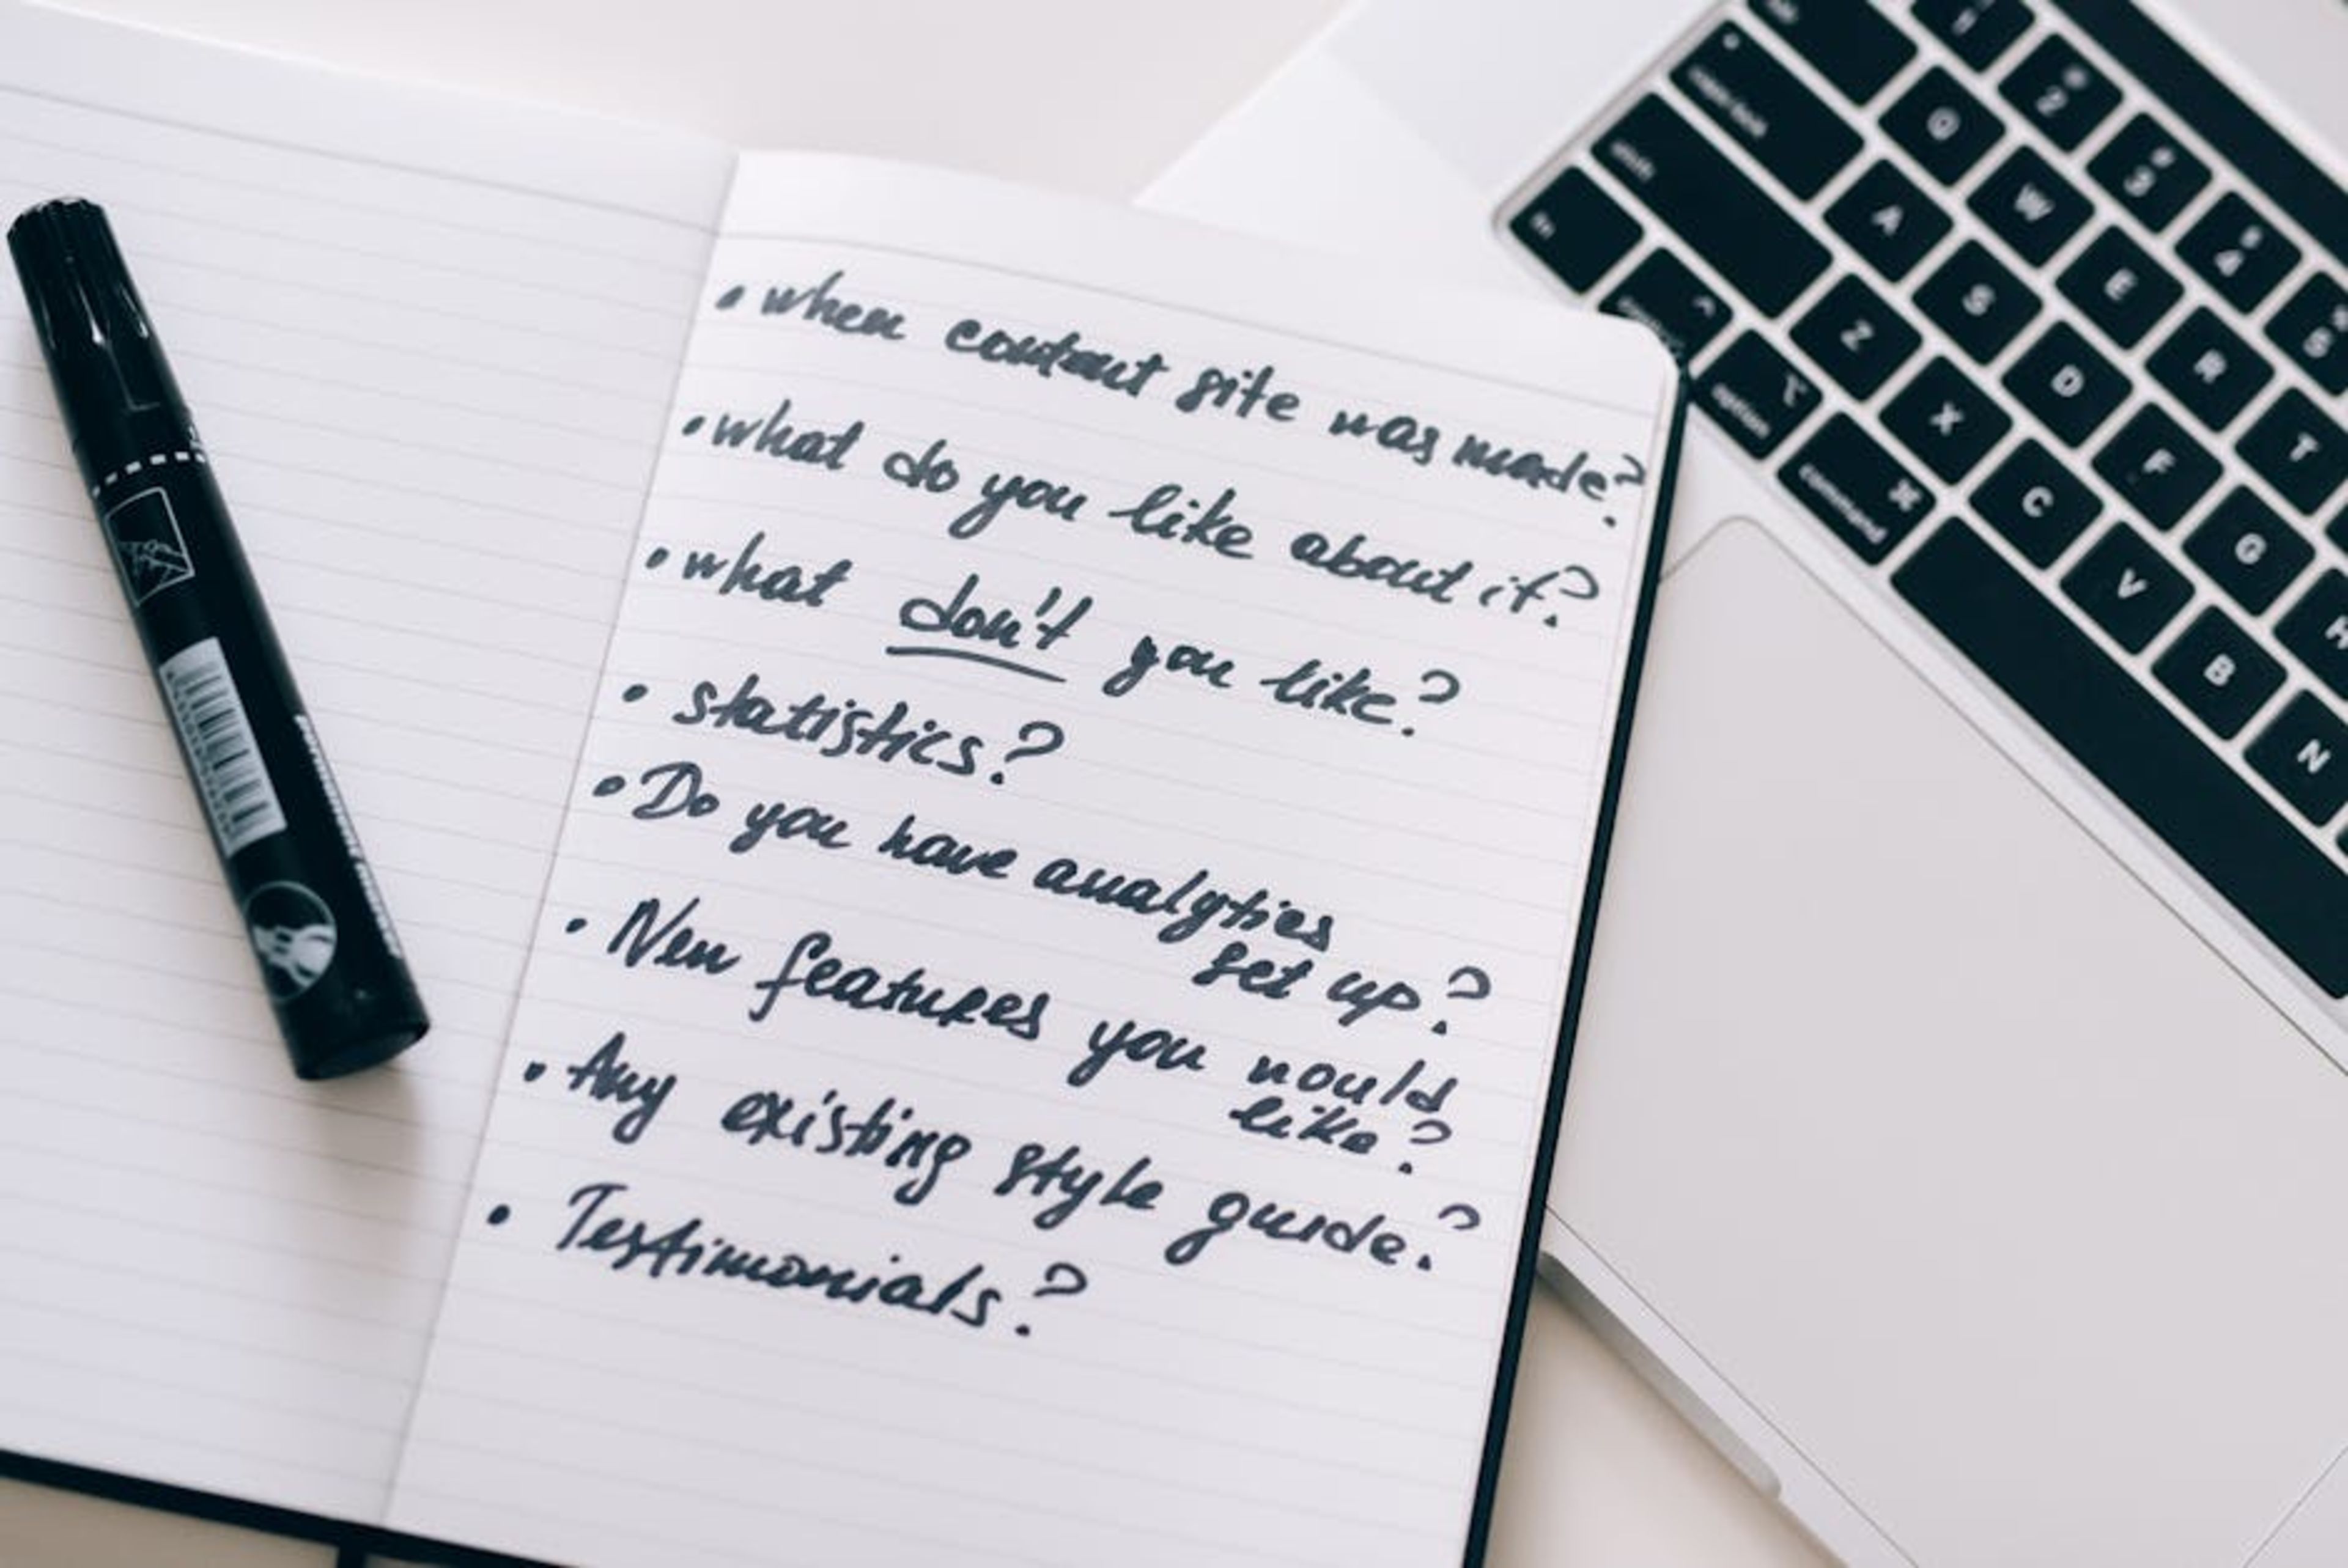 • when content site was made?
• what do you like about it?
• what don't you like?
• statistics?
• Do you have analytics
set up?
• New features you would
like?
• Any existing style guide?
• Testimonials?
tab
caps lock
shift
fn
control
option
command
1
@ 2
# 3
$ 4
% 5
Q W E R T
A S D F G H
Z X C V B N